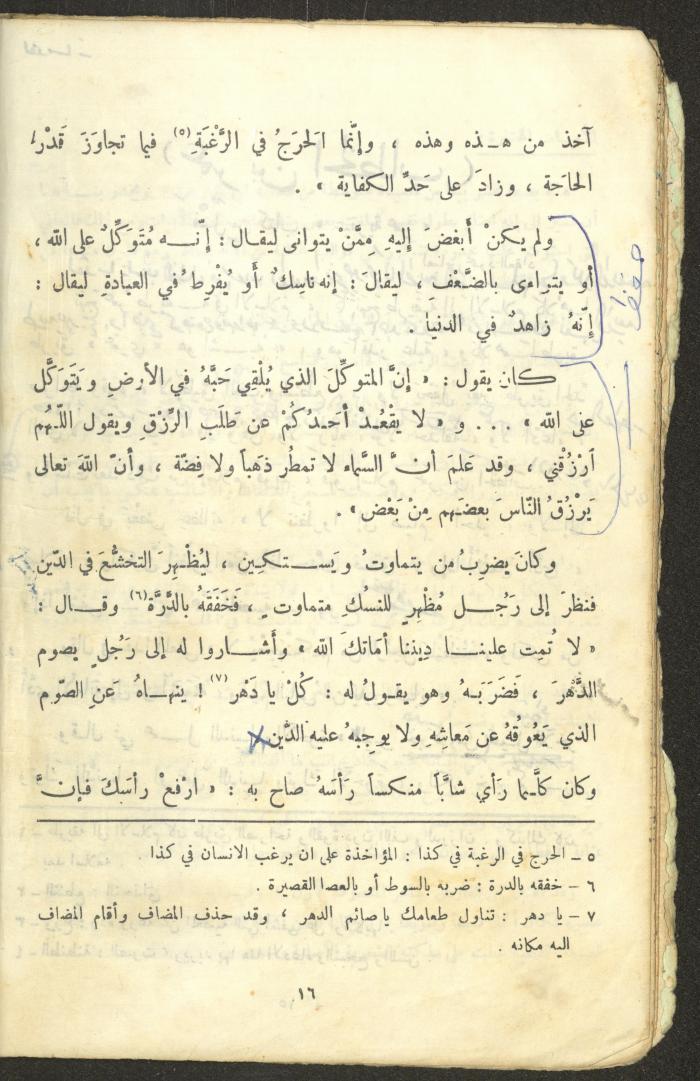 آخذ من هـذه وهذه ، وإنَّما الَحرَجُ في الرَّغْبَةِ(٥) فيما تجاوَزَ قَدْرَ
الحاَجة ، وزادَ على حَدِّ الكفاية » .
ولم يكنْ أَبغضَ إليهِ مِمَّنْ يتوانى ليقال : إنَّـه مُتَوَكِّلٌ على الله ،
أو يتراءى بالضَّعْف ، ليقالَ : إنه ناسِكٌ أَو يُفْرِطُ في العبادةِ ليقال :
إِنَّهُ زاهدٌ في الدنيا .
حفظ
كان يقول : « إنَّ المتوكِّلَ الذي يُلْقِي حَبَّهُ في الأرضِ ويَتَوَكَّل
على الله » . . . و « لا يقْعُـدْ أَحَدُكُمْ عن طَلَبِ الرِّزْقِ ويقول اللّـهُم
اَرْزُقْني ، وقد عَلِمَ أنَّ السَّماء لا تمطُر ذَهباً ولا فِضّة ، وأنّ اللهَ تعالى
يَرْزُقُ النّاسَ بعضَهم مِنْ بَعْض » .
وكانَ يضرِبُ من يتماوتُ ويَستكين ، ليُظْهِرَ التخشُّعَ في الدّين
فنظرَ إلى رَجُـل مُظْهِرٍ للنسُكِ متماوتٍ ، فَخَفَقَهُ بالدِّرَّة(٦) وقـال :
« لا تُمِت علينـا دِينَنا أمَاتكَ الله » وأَشـاروا له إلى رَجُلٍ يصوم
الدَّهْرَ ، فَضَرَبَـهُ وهو يقـولُ له : كُلْ يا دَهْر(٧) ! ينهـاهُ عَنِ الصَّوم
الذي يَعُوقُهُ عن مَعاشِهِ ولا يوجِبهُ عليه الدِّين
وكان كلَّـما رَأي شابَّاً منكساً رَأسَهُ صاح به : « ارْفعْ رأسَكَ فإنَّ
٥ ـ الحرج في الرغبة في كذا : المؤاخذة على ان يرغب الانسان في كذا .
٦ - خفقه بالدرة : ضربه بالسوط أو بالعصا القصيرة .
٧ - يا دهر : تناول طعامك يا صائم الدهر ، وقد حذف المضاف وأقام المضاف
اليه مكانه .
١٦